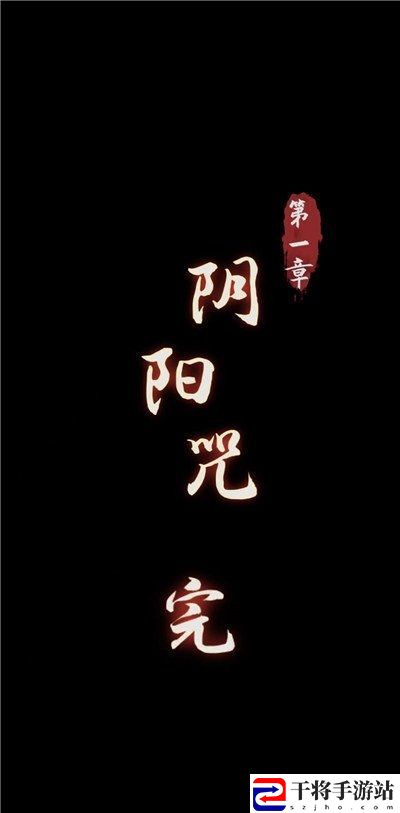 第一章
阴阳咒
完
干将手游站
szjho.com